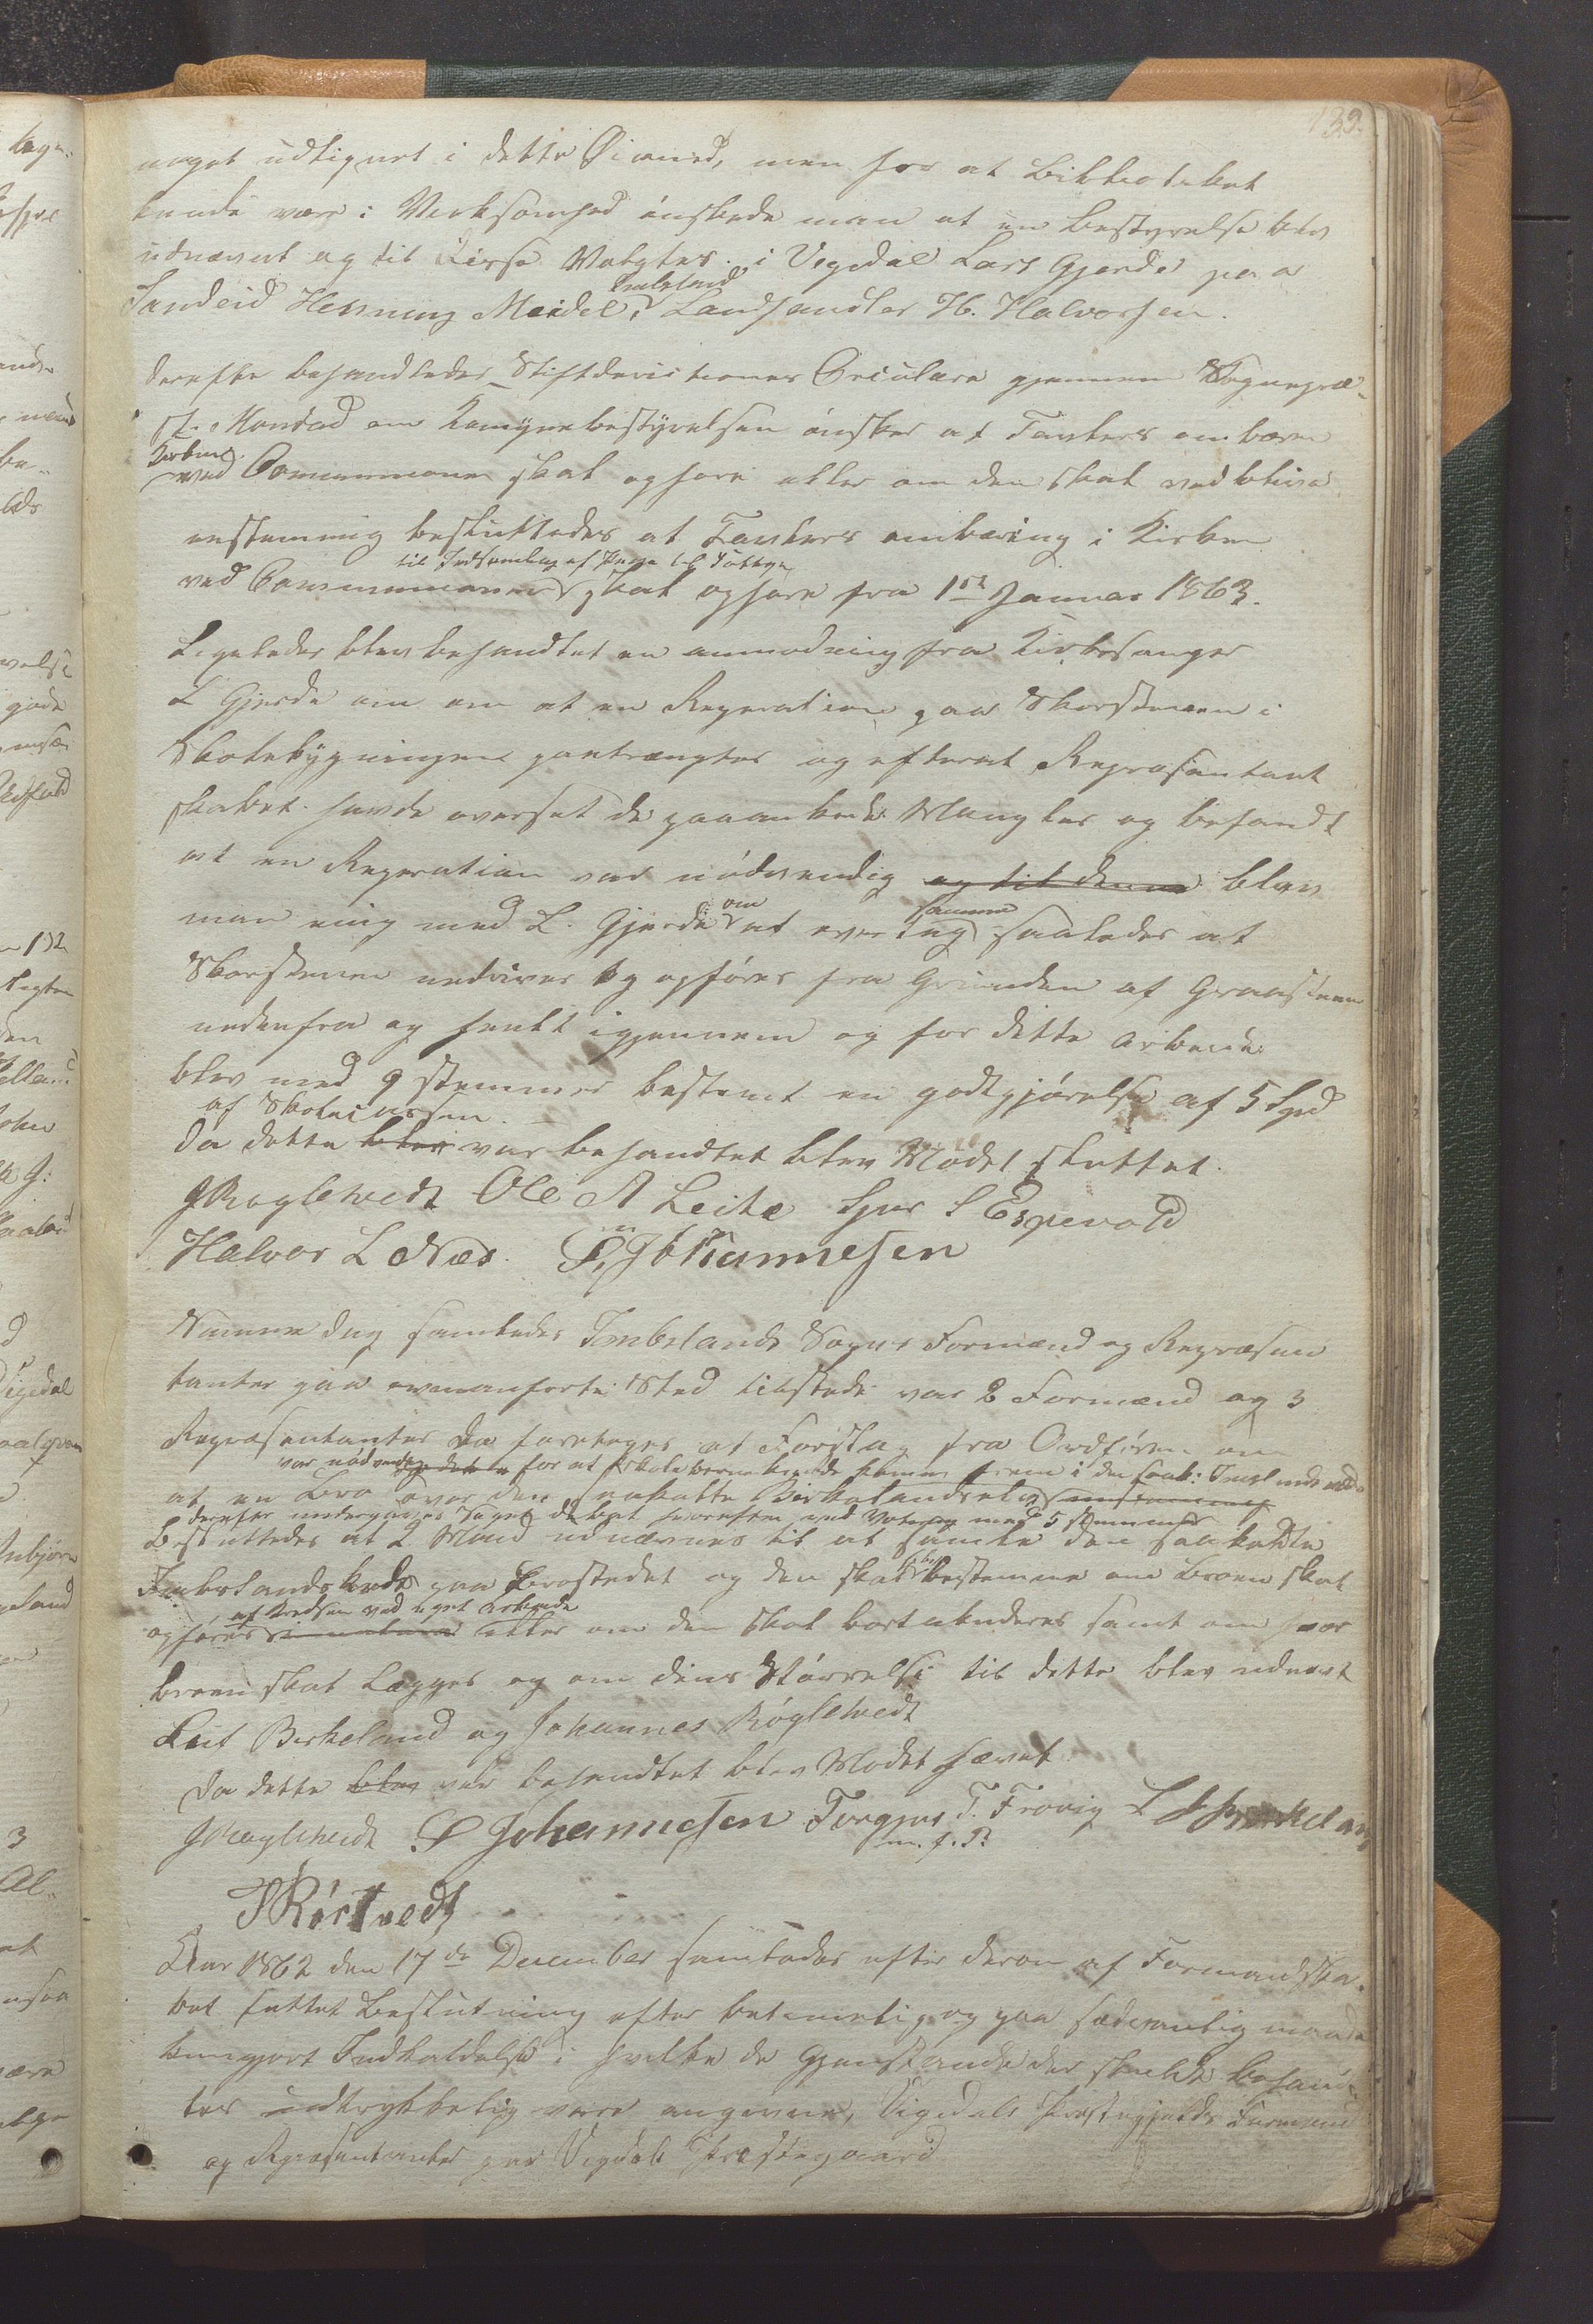 139.
noget udlignet i dette Øimed, men for at Bibliotheket
kunde være i Virksomhed ønskede man at en Bestyrelse blev
udnævnt og til disse Valgtes i Vigedal Lars Gjerde paa
Imbsland
Sandeid Henning Meidel, Landhandler H. Halvorsen.
derefter behandledes Stiftdirectionens Circulære gjennem Sognepræ-
st Mondad om Komunebestyrelsen ønsker at Tavlers ombæren
Kirken
ved Communionen skal ophøre eller om den skal vedblive
enstemmig besluttedes at Tavlers ombæring i Kirken
til Indsamling af Penge til Fattige
ved Communionen skal ophøre fra 1ste Januar 1863.
Ligeledes blev behandlet en anmodning fra Kirkesanger
L Gjerde om om at en Reperation paa Skorstenen i
Skolebygningen paatrængtes og efterat Repræsentant
skabet havde overset de paaankede Mangler og befandt
at en Reperation var nødvendig og til denne blev
om samme
man enig med L. Gjerde at overtag saaledes at
Skorstenen nedrives og opføres fra Grunden af Graasteen
nedenfra og heelt igjennem og for dette Arbeide
blev med 9 stemmer bestemt en godtgjørelse af 5 Spd
af Skolecassen.
da dette blev var behandlet blev Mødet sluttet.
J Røglehvedt Ole A Leite Sjur S Espevold
Halvor L Næs. S. Johannesen
Samme dag samledes Imbslands Sogns Formænd og Repræsen
tanter paa ovenanførte Sted tilstede var 2 Formænd og 3
Repræsentanter da foretoges at Forslag fra Ordføren om
var nødvendig for at Skolebørn kunde komme frem i den
at en Bro over den saakaldte Birkelandselv
derefter undergaves Sagen debat hvorefter ved Votering med 5 stemmer
Besluttedes at 2 Mænd udnævnes til at samle den saakaldte
Imbslandskreds paa Brostedet og den skal bestemme om Broen skal
af Kredsen ved eget Arbeide
opføres in natura eller om den skal bortakorderes samt om hvor
broen skal Lægges og om dens Størrelse til dette blev udnævt
Leif Birkeland og Johannes Røglehvedt
da dette blev var behandlet blev Mødet hævet.
J Røglehvedt S Johannesen Torgjus T. Frøvig L Birkeland
m. f. P.
J Rørtvedt
Aar 1862 den 17de December samledes efter derom af Formandska-
bet fattet Beslutning efter betimelig og paa sædvanlig maade
kungjort Indkaldelse i hvilke de Gjenstande der skulde behand-
les udtrykkelig vare angivne, Vigedals Præstegjælds Formænd
og Repræsentanter paa Vigedals Præstegaard